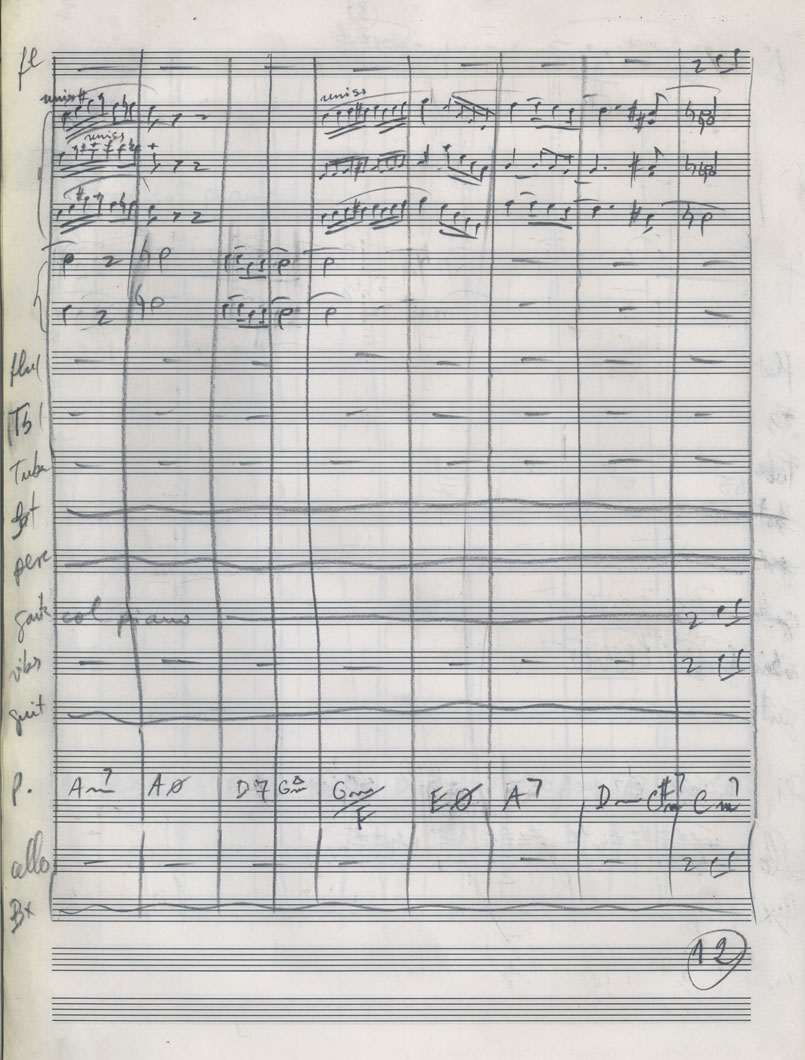 fl
uniss
uniss
uniss
flug
Tb
Tuba
bat
perc
col piano
vibs
guit
P. Am7 AØ D7 GmΔ Gm/F EØ A7 Dm C#m7 Cm7
cello
Bx
12